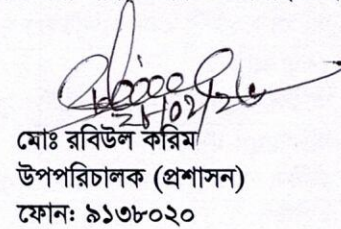 মোঃ রবিউল করিম
উপপরিচালক (প্রশাসন)
ফোনঃ ৯১৩৮০২০